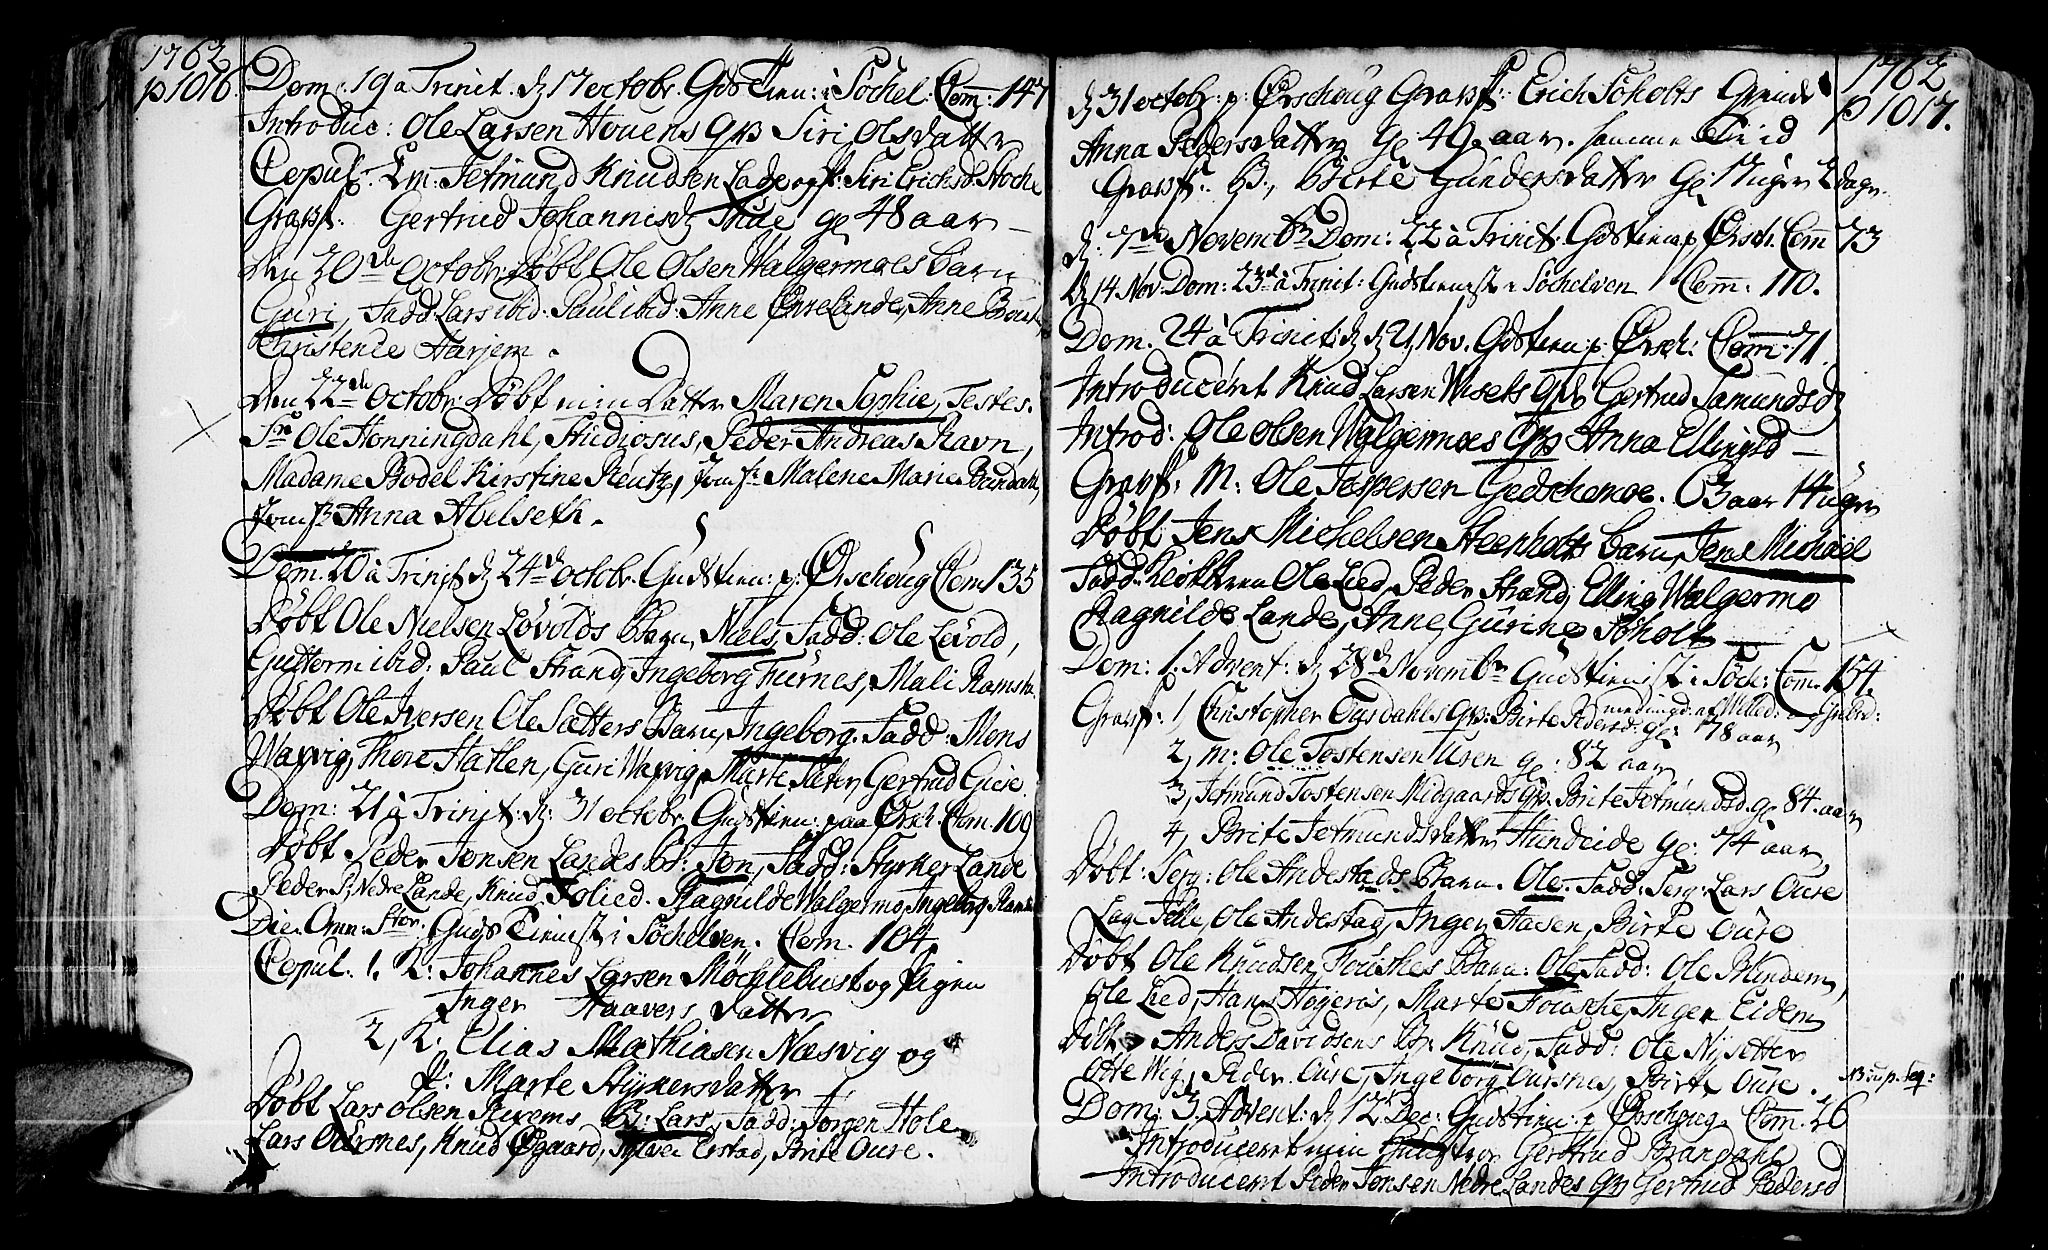 1762
p 1016.
Dom: 19 a Trinit. d 17 octobr. Gds Tien: i Söchel. Com: 147
Introduc: Ole Larsen Hovens qv Siri Olsdatter
Copul. E.m: Jetmund Knudsen Lade og p: Siri Erichsd. Stoche
Gravf. Gertrud Johannisd Hide gl 48 aar —
Den 20de Octobr. Döbt Ole Olsen Walgermoes barn
Guri, Fadd: Lars ibid: Paul ibid: Anne Øvre Lande, Anne
Christence Harjem.
Den 22de Octobr. Döbt min Datter Maren Sophie, Testes.
Sr Ole Honningdahl, Studiosus, Peder Andreas Ravn,
Madame Bodel Kirstine Reutz, Jomfr Malene Marie
Jomfr Anna Abelseth.
Dom. 20 a Trinit d 24de octobr. Gudstien: p: Ørschoug Com 135
Döbt Ole Nielsen Lövolds Barn, Niels, Fadd: Ole Lövold,
Guttorm ibid: Paul Strand, Ingeborg Furnes, Mali
Döbt Ole Iversen Ole Sætters Barn, Ingeborg. Fadd: Mons
Wasvig, Thore Hatlen, Guri Wasvig, Marte Sæter, Gertrud Giere.
Dom: 21 a Trinit: d: 31 octobr. Gudstien: paa Ørsch. Com. 109
Döbt Peder Jonsen Landes b: Jon, Fadd: Styrker Lande
Peder P. Nedre Lande, Knud Folied. Ragnilde Walgermo, Ingeborg
Die. Omn: Stor. Guds Tienest i Söchelven. Com. 104.
Copul. 1, K: Johannes Larsen Möchlebust og Pigen
Inger Haavers datter
2, K: Elias Mathiasen Næsvig og
p: Marte Styrkersdatter
Döbt Lars Olsen Revems B: Lars, Fadd: Jørgen Hole
Lars Oursnes, Knud Øgaard, Sylvei Erstad, Brite Oure.
1762
p 1017.
d 31 octobr: p: Ørschoug Gravf: Erich Söholts
Anna Pedersdatter gl 49. aar. samme Tiid
Gravf: B., Birte Gundersdatter gl: 17 uger 2 dage.
d: 7de Novembr Dom: 22 à Trinit. Gdstien p Ørsch: Com 73
d 14 Nov. Dom: 23de à Trinit: Gudstienest i Söchelven Com: 110.
Dom. 24 à Trinit: d 21 Nov. Gdstien p: Ørsch: Com: 71.
Introduceret Knud Larsen Wisets qv Gertrud Samundsd
Introd: Ole Olsen Walgermoes qv Anna Ellingsd —
Gravf: M: Ole Jospersen 63 aar 14 uger
Döbt Jens Michelsen Steenholts barn, Jens Michael
Fadd: Ole Lied, Peder Strand, Elling Walgermo
Ragnilde Lande, Anne Gurine Söholt
Dom: 1. Advent: d 28de Novembr Gudstienist i Söch: Com. 154.
Gravf: 1, Christopher Ogsdahls qv: Birte Pedersd: gl: 78 aar
2, m: Ole Tostensen Uren gl: 82 aar
3, Jetmund Tostensen Midgaards qv. Brite Jetmundsd. gl 84. aar
4, Brite Jetmundsdatter Hundeide gl: 74 aar,
Döbt: Serg: Ole Andestads Barn. Ole. Fadd: Serg: Lars Oure
Lage Felle, Ole Andestad, Inger Aasen, Birte Oure
Döbt Ole Knudsen Fousches Barn: Ole Fadd: Ole Blindem,
Ole Lied, Hans Høyeraas, Marte Fousche, Inger Eidem
Döbt Anders Davidsens Br. Knud, Fadd: Ole Nysetter
Otte Wig, Peder Oure, Ingeborg Oursnes, Birte Oure.
Dom: 3. Advent: d 12 Dec: Gudstien: p Ørschoug. Com. 26
Introduceret min Gertrud Brandahl
Introduceret Peder Jonsen Nedre Landes qv Gertrud Pedersd